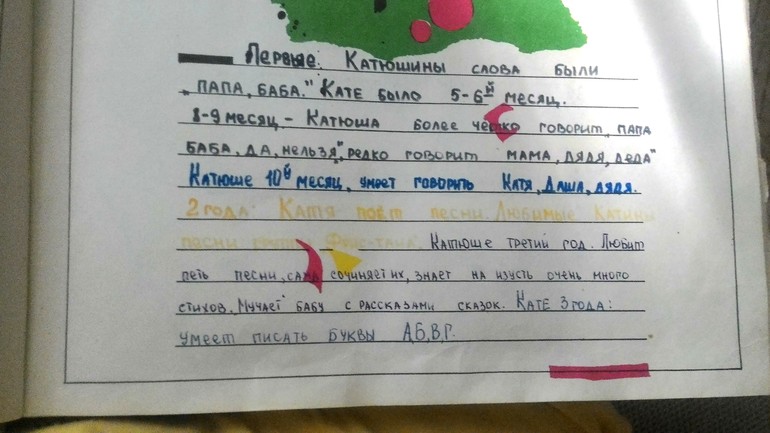 Первые: Катюшины слова были
„папа, баба." Кате было 5-6й месяц.
8-9 месяц - Катюша более четко говорит „папа
баба, да, нельзя", редко говорит мама, дядя, деда"
Катюше 10й месяц, умеет говорить Катя, Даша, дядя.
2 года. Катя поёт песни. Любимые Катины
песни группы Фристайл. Катюше третий год. Любит
петь песни, сама сочиняет их, знает на изусть очень много
стихов. „Мучает" бабу с рассказами сказок. Кате 3 года:
умеет писать буквы А,Б,В,Г.